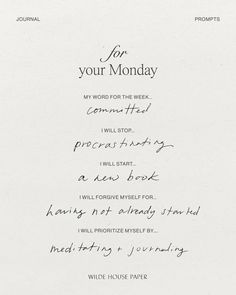 JOURNAL PROMPTS
for
your Monday
MY WORD FOR THE WEEK...
committed
I WILL STOP...
procrastinating
I WILL START...
a new book
I WILL FORGIVE MYSELF FOR...
having not already started
I WILL PRIORITIZE MYSELF BY...
meditating + journaling
WILDE HOUSE PAPER